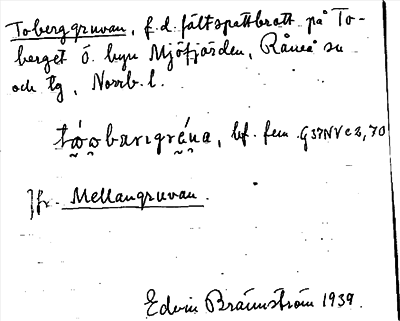 Toberggruvan, f.d. fältspattbrott på To-
berget Ö. byn Mjöfjärden, Råneå sn
och tg, Norrb. l.
tǻo̯bærıgrúna, bf. fem. G37NVc3,70
Jfr. Mellangruvan.
Edvin Brännström 1939.